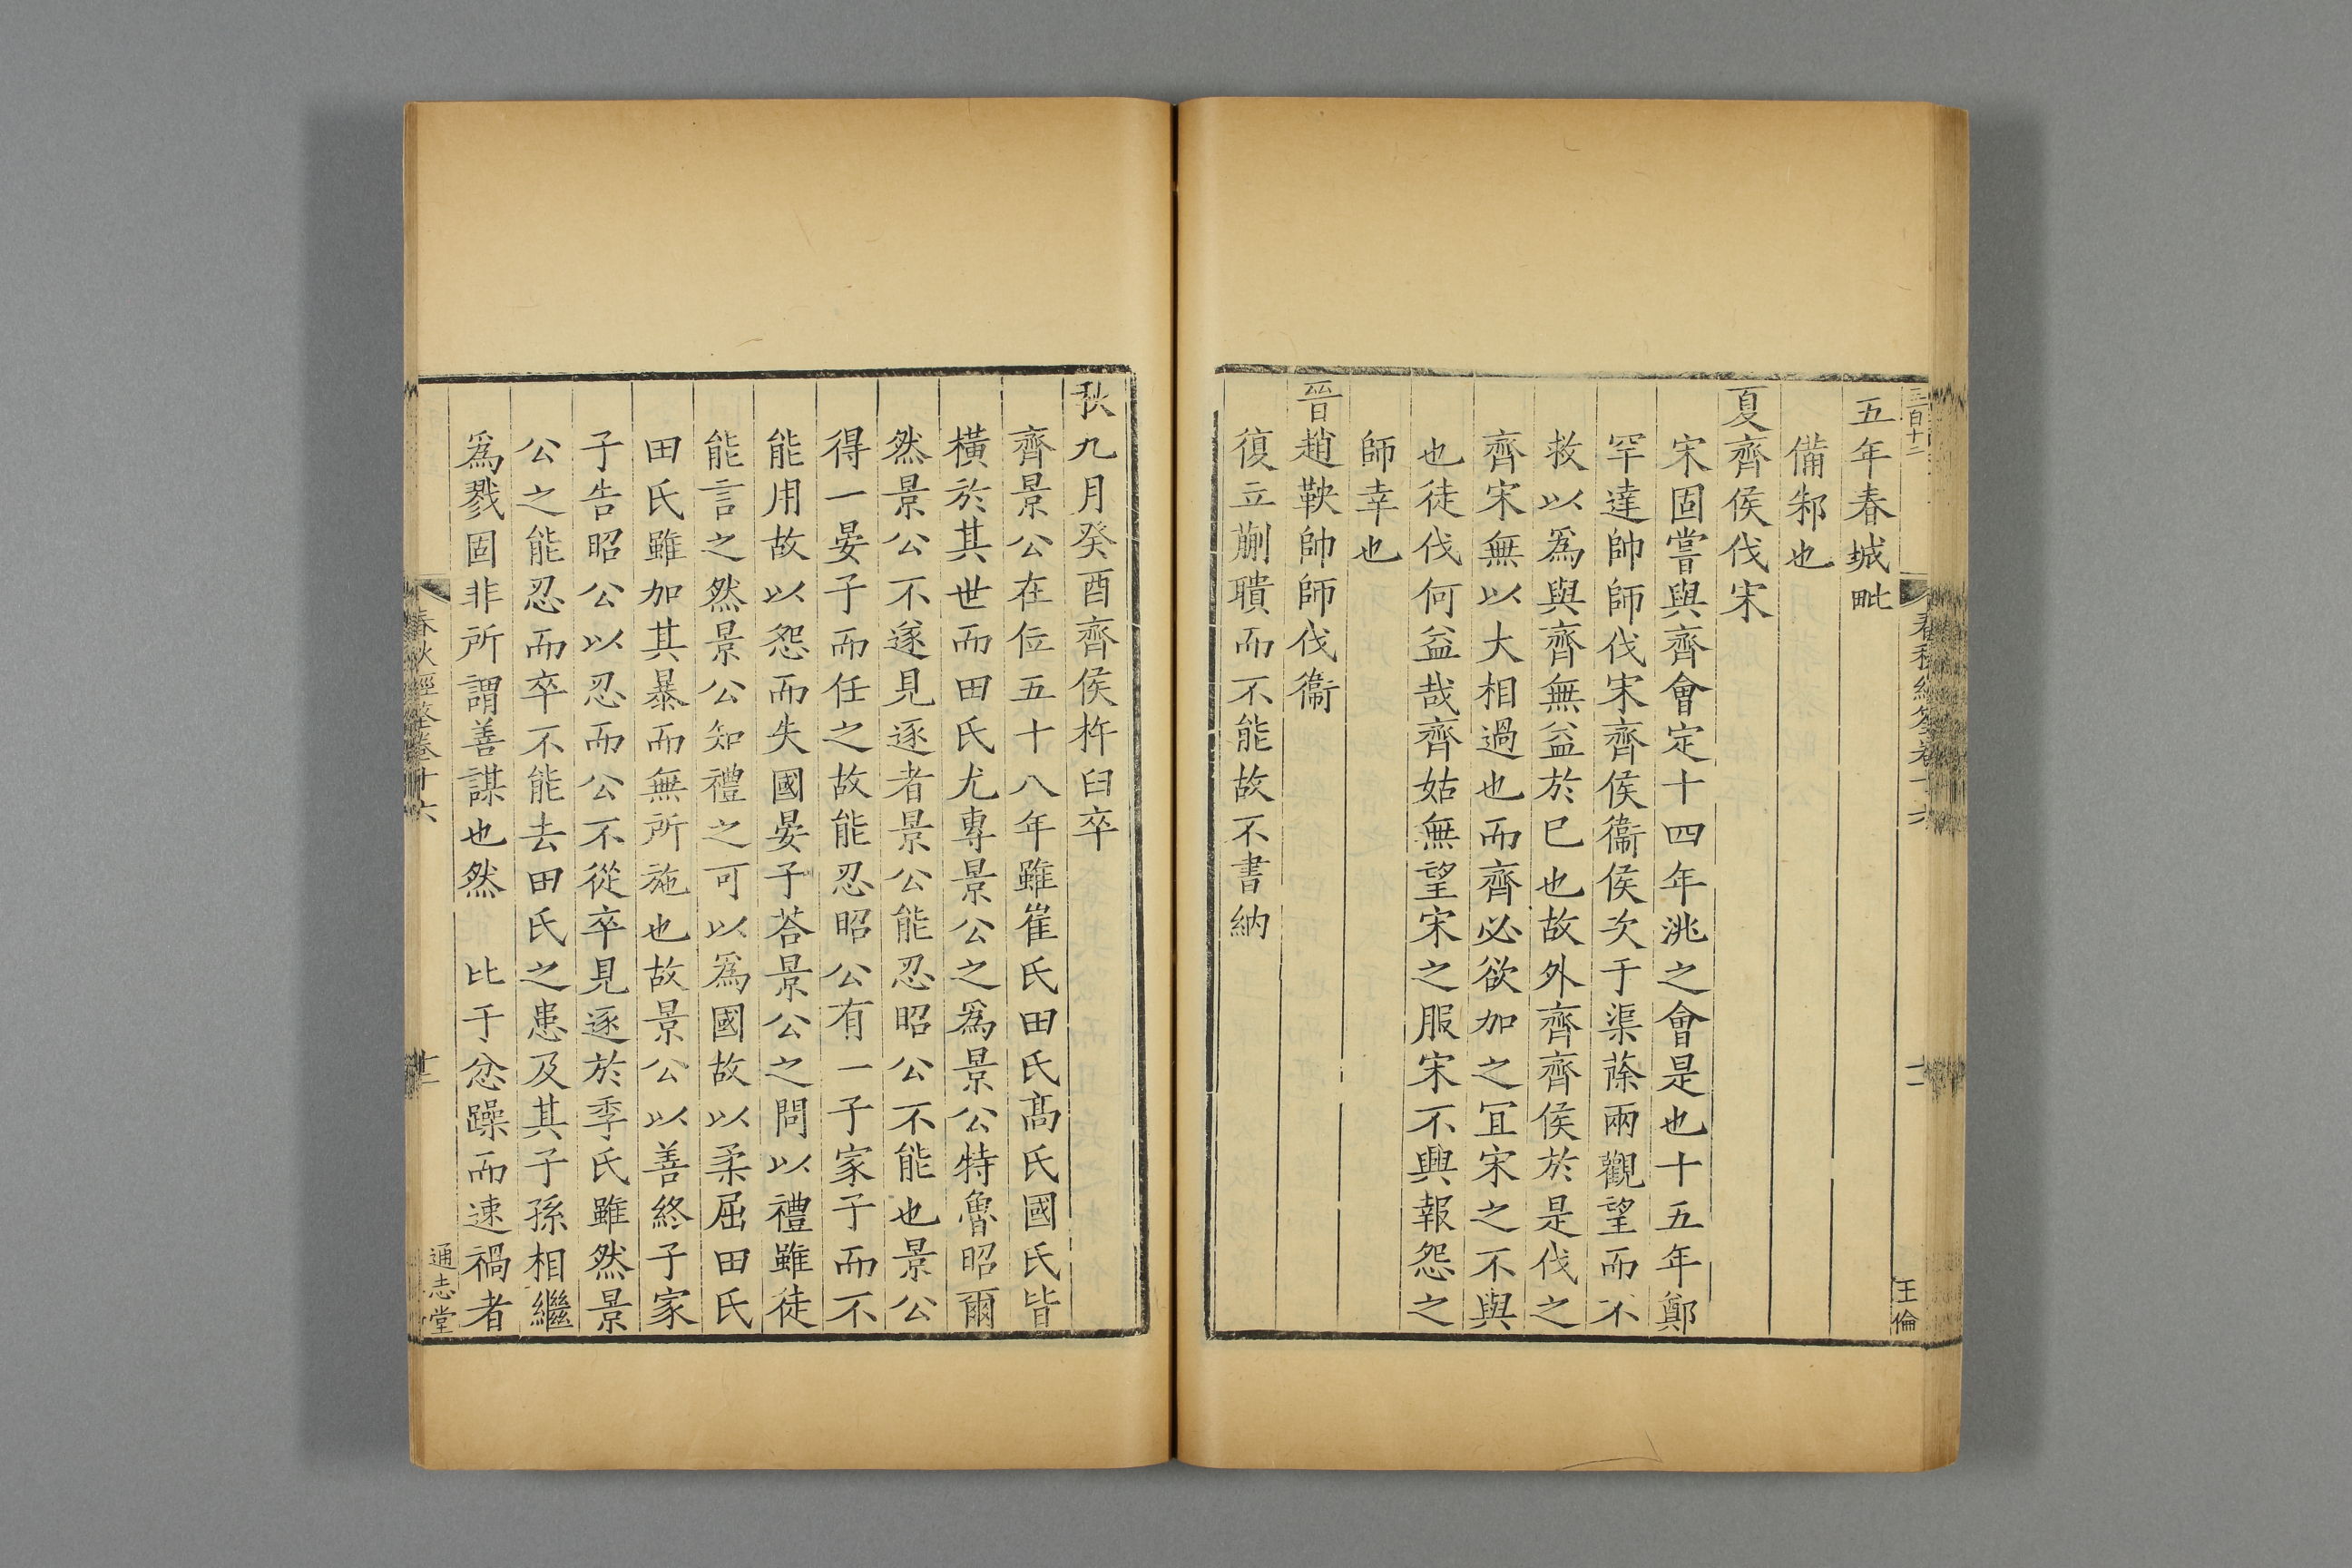 三百十二
王倫
五年春城毗
備邾也
夏齊侯伐宋
宋固嘗與齊會定十四年洮之會是也十五年鄭
罕達帥師伐宋齊侯衞侯次于渠蒢兩觀望而不
救以爲與齊無益於巳也故外齊齊侯於是伐之
齊宋無以大相過也而齊必欲加之冝宋之不與
也徒伐何益哉齊姑無望宋之服宋不興報怨之
師幸也
晉趙鞅帥師伐衞
復立蒯聵而不能故不書納
秋九月癸酉齊侯杵臼卒
齊景公在位五十八年雖崔氏田氏髙氏國氏皆
橫於其世而田氏尤專景公之爲景公特魯昭爾
然景公不遂見逐者景公能忍昭公不能也景公
得一晏子而任之故能忍昭公有一子家子而不
能用故以怨而失國晏子荅景公之問以禮雖徒
能言之然景公知禮之可以爲國故以柔屈田氏
田氏雖加其暴而無所施也故景公以善終子家
子告昭公以忍而公不從卒見逐於季氏雖然景
公之能忍而卒不能去田氏之患及其子孫相繼
爲戮固非所謂善謀也然 比于忿躁而速禍者
春秋經筌卷十六
十二
通志堂